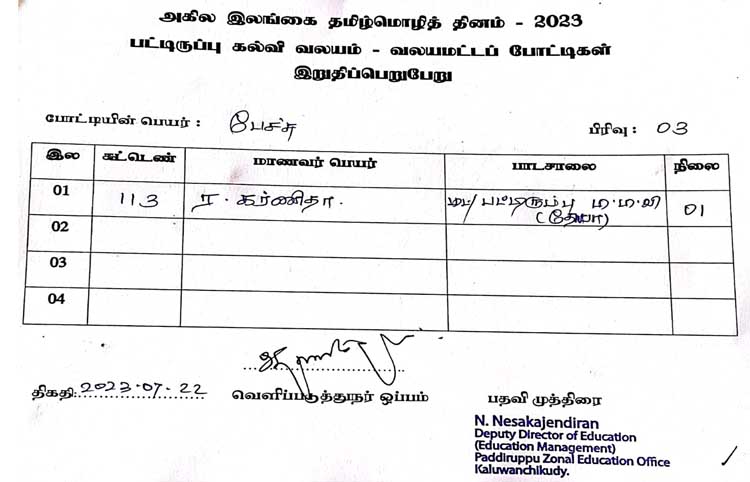 அகில இலங்கை தமிழ்மொழித் தினம் - 2023
பட்டிருப்பு கல்வி வலயம் - வலயமட்டப் போட்டிகள்
இறுதிப்பெறுபேறு
போட்டியின் பெயர் : பேச்சு பிரிவு : 03
இல சுட்டெண் மாணவர் பெயர் பாடசாலை நிலை
01 113 ர. கர்ணிதா. மட்/பட்டிருப்பு ம.ம.வி 01
(தேபா)
02
03
04
திகதி: 2023-07-22 வெளிப்படுத்துநர் ஒப்பம் பதவி முத்திரை
N. Nesakajendiran
Deputy Director of Education
(Education Management)
Paddiruppu Zonal Education Office
Kaluwanchikudy.